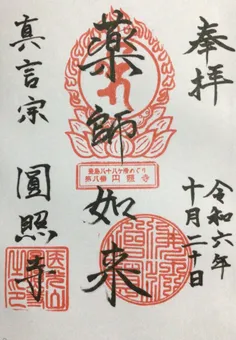 奉拝
令和六年
十月二十日
薬師如来
第八番 円照寺
真言宗
圓照寺